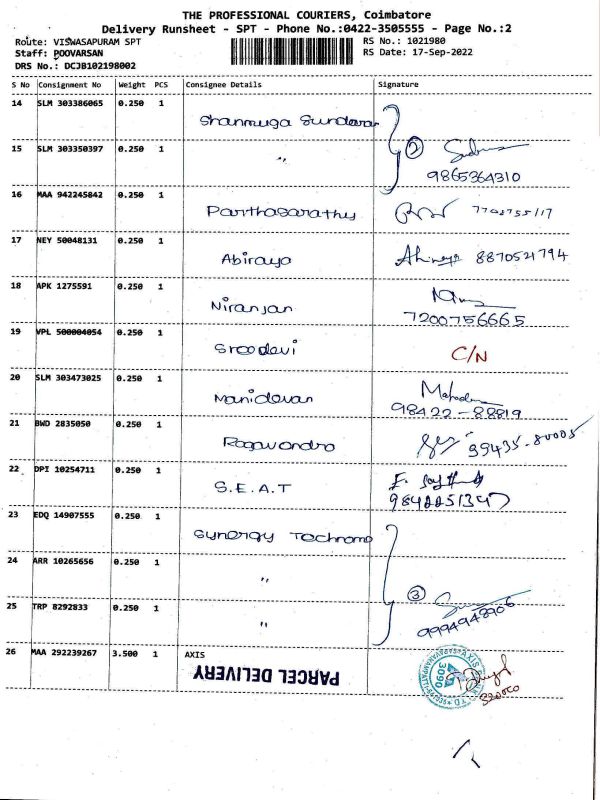 THE PROFESSIONAL COURIERS, Coimbatore
Delivery Runsheet - SPT - Phone No.:0422-3505555 - Page No.:2
Route: VISWASAPURAM SPT RS No.: 1021980
Staff: POOVARSAN RS Date: 17-Sep-2022
DRS No.: DCJB102198002
S No Consignment No Weight PCS Consignee Details Signature
14 SLM 303386065 0.250 1 Shanmuga Sundaram
15 SLM 303350397 0.250 1 " 2
9865364310
16 MAA 942245842 0.250 1 Parthasarathy
17 NEY 50048131 0.250 1 Abiraya 8870521794
18 APK 1275591 0.250 1 Niranjan
7200756665
19 VPL 500004054 0.250 1 Sreedevi C/N
20 SLM 303473025 0.250 1 Manidevan
98422-88819
21 BWD 2835050 0.250 1 Ragavendra 99435-80005
22 DPI 10254711 0.250 1 S.E.A.T
9842251347
23 EDQ 14907555 0.250 1 Synergy Techno
24 ARR 10265656 0.250 1 " 3
25 TRP 8292833 0.250 1 " 9994948906
26 MAA 292239267 3.500 1 AXIS
PARCEL DELIVERY
3090